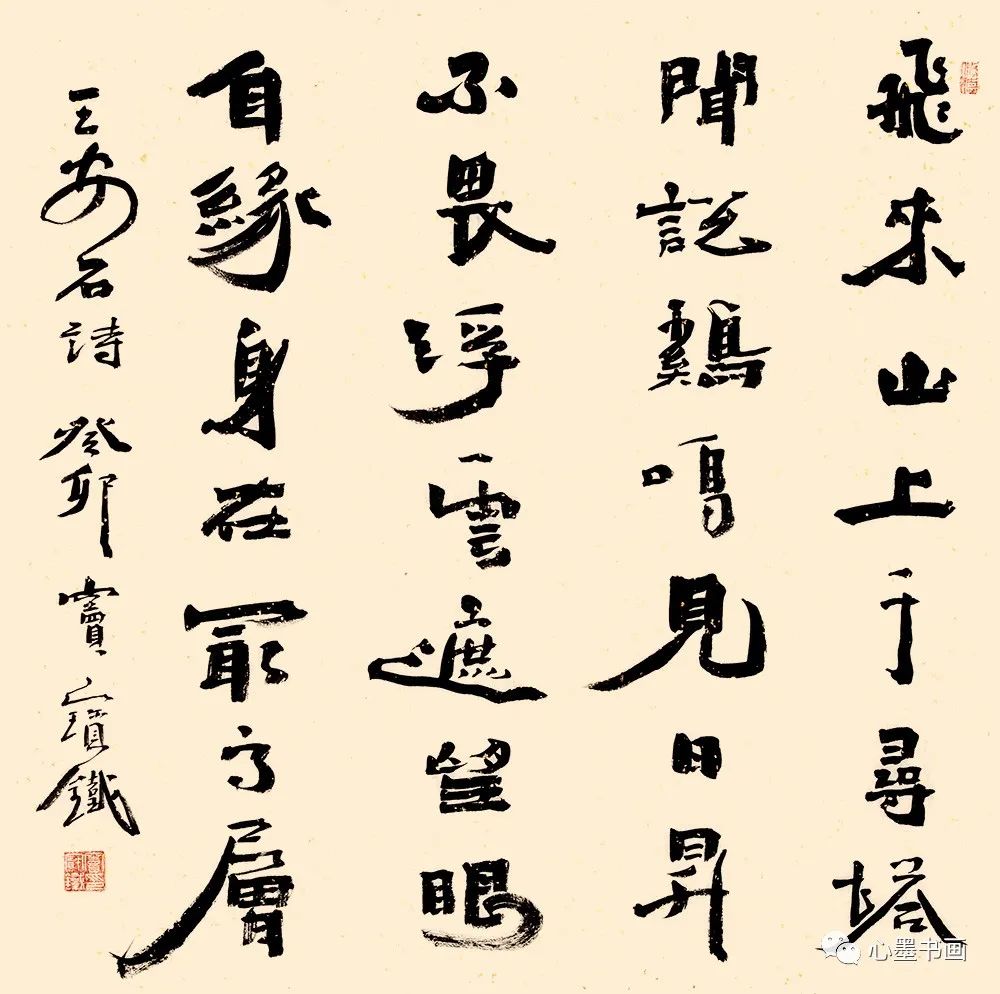 飛來山上千尋塔
聞說鷄鳴見日昇
不畏浮雲遮望眼
自緣身在最高層
王安石詩 癸卯 竇寶鐵
心墨书画